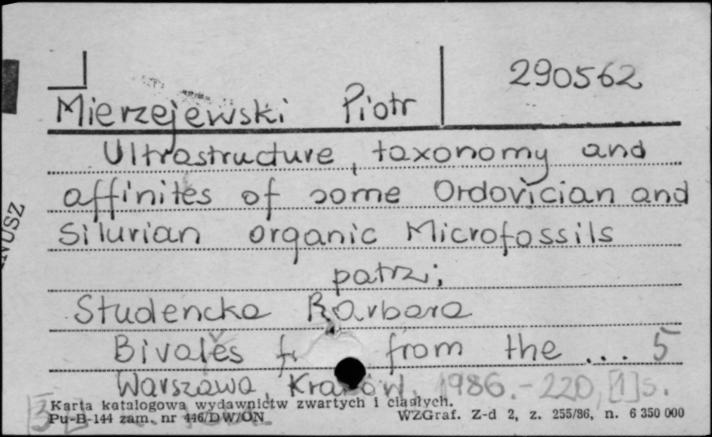 290562
Mierzejewski Piotr
Ultrastructure, taxonomy and
affinites of some Ordovician and
Silurian organic Microfossils
patrz:
Studencka Barbara
Bivales from the ... 5
Warszawa, Kraków, 1986. - 220, [1] s.
Karta katalogowa wydawnictw zwartych i ciągłych.
Pu-B-144 zam. nr 446/DW/ON WZGraf. Z-d 2, z. 255/86, n. 6 350 000